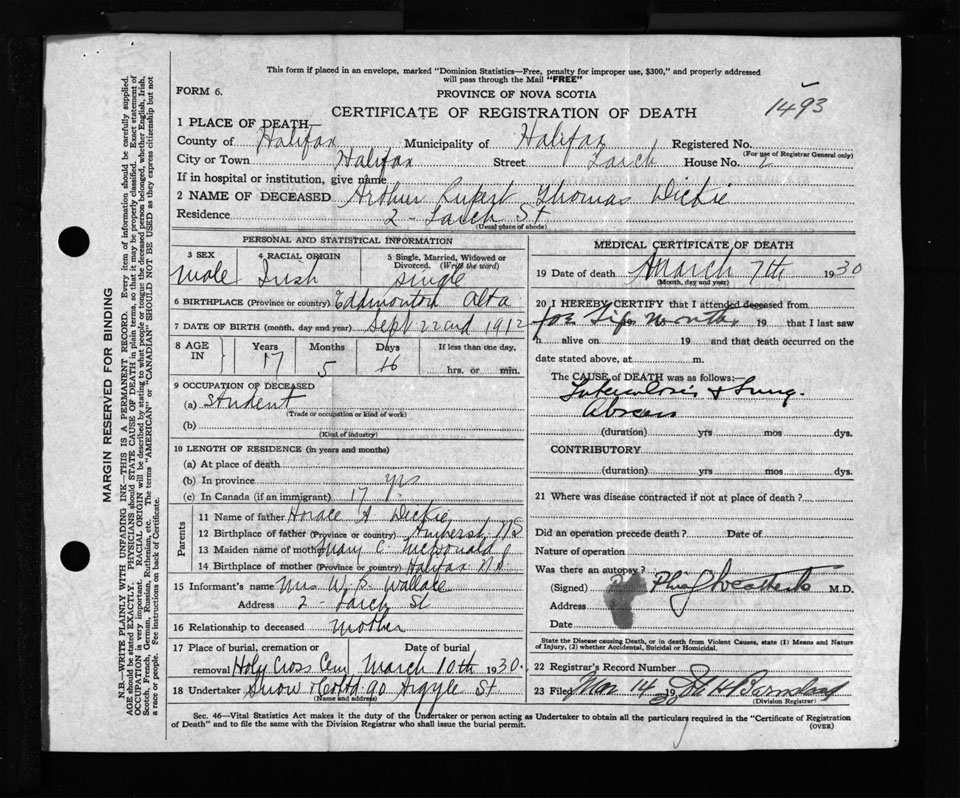 This form if placed in an envelope, marked "Dominion Statistics—Free, penalty for improper use, $300," and properly addressed
will pass through the Mail "FREE"
FORM 6.
PROVINCE OF NOVA SCOTIA
1493
CERTIFICATE OF REGISTRATION OF DEATH
1 PLACE OF DEATH—
County of Halifax Municipality of Halifax Registered No.
(For use of Registrar General only)
City or Town Halifax Street Larch House No. 2
If in hospital or institution, give name
2 NAME OF DECEASED Arthur Rupert Thomas Dickie
Residence 2 - Larch St
(Usual place of abode)
PERSONAL AND STATISTICAL INFORMATION
3 SEX 4 RACIAL ORIGIN 5 Single, Married, Widowed or
Divorced. (Write the word)
Male Irish Single
6 BIRTHPLACE (Province or country) Eddmonton Alta
7 DATE OF BIRTH (month, day and year) Sept 22nd 1912
8 AGE IN Years Months Days If less than one day,
17 5 16 hrs. or min.
9 OCCUPATION OF DECEASED
(a) Student
(Trade or occupation or kind of work)
(b)
(Kind of industry)
10 LENGTH OF RESIDENCE (in years and months)
(a) At place of death
(b) In province yrs
(c) In Canada (if an immigrant) 17
Parents
11 Name of father Horace A Dickie
12 Birthplace of father (Province or country) Amherst NS
13 Maiden name of mother Mary C. McDonald
14 Birthplace of mother (Province or country) Halifax N.S.
15 Informant's name Mrs W. B. Wallace
Address 2 - Larch St
16 Relationship to deceased Mother
17 Place of burial, cremation or Date of burial
removal Holy Cross Cem March 10th 1930.
18 Undertaker Snow & Co Ltd 90 Argyle St
(Name and address)
MEDICAL CERTIFICATE OF DEATH
19 Date of death March 7th 1930
(Month, day and year)
20 I HEREBY CERTIFY that I attended deceased from
for Months 19 that I last saw
h alive on 19 and that death occurred on the
date stated above, at m.
The CAUSE OF DEATH was as follows:—
Tuberculosis & Lung.
Abscess
(duration) yrs mos dys.
CONTRIBUTORY
(duration) yrs mos dys.
21 Where was disease contracted if not at place of death?
Did an operation precede death? Date of
Nature of operation
Was there an autopsy?
(Signed) Phil Weatherbe M.D.
Address
Date
State the Disease causing Death, or in death from Violent Causes, state (1) Means and Nature
of Injury, (2) whether Accidental, Suicidal or Homicidal.
22 Registrar's Record Number
23 Filed Mar 14 1930
(Division Registrar)
Sec. 46—Vital Statistics Act makes it the duty of the Undertaker or person acting as Undertaker to obtain all the particulars required in the "Certificate of Registration
of Death" and to file the same with the Division Registrar who shall issue the burial permit.
(OVER)
MARGIN RESERVED FOR BINDING
N.B.—WRITE PLAINLY WITH UNFADING INK—THIS IS A PERMANENT RECORD. Every item of information should be carefully supplied.
AGE should be stated EXACTLY. PHYSICIANS should STATE CAUSE OF DEATH in plain terms, so that it may be properly classified. Exact statement of
OCCUPATION is very important. RACIAL ORIGIN will be described by stating to what people or tongue the deceased person belonged, whether English, Irish,
Scotch, French, German, Russian, Ruthenian, etc. The terms "AMERICAN" or "CANADIAN" SHOULD NOT BE USED as they express citizenship but not
a race or people. See instructions on back of Certificate.